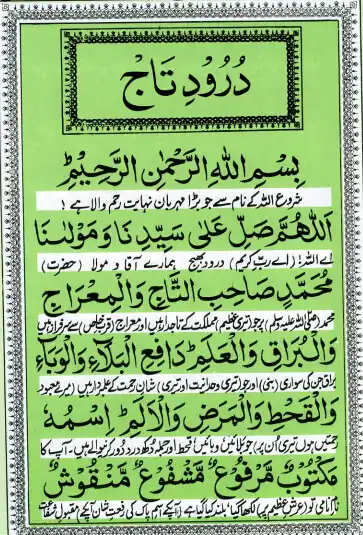 دُرُودِ تَاج
بِسْمِ اللهِ الرَّحْمٰنِ الرَّحِيْمِ
شروع اللہ کے نام سے جو بڑا مہربان نہایت رحم والا ہے !
اَللّٰهُمَّ صَلِّ عَلٰى سَيِّدِنَا وَمَوْلٰىنَا
اے اللہ! (اے ربّ کریم) درود بھیج ہمارے آقا و مولا (حضرت)
مُحَمَّدٍ صَاحِبِ التَّاجِ وَالْمِعْرَاجِ
محمد (صلی اللہ علیہ وسلم) پر جو (تیری عظیم) مملکت کے تاجدار ہیں اور معراج (قرب خاص) سے سرفراز ہیں
وَالْبُرَاقِ وَالْعَلَمِ ؕ دَافِعِ الْبَلَآءِ وَالْوَبَآءِ
براق جن کی سواری (بنی) اور جو (تیری وحدانیت اور تیری) شان رحمت کے علمدار ہیں (میرے معبود
وَالْقَحْطِ وَالْمَرَضِ وَالْاَلَمِ ؕ اِسْمُهٗ
رحمتیں ہوں تیری اُن پر) جو بلائیں وبائیں قحط اور جملہ دکھ درد دور کرنیوالے ہیں - آپ کا
مَكْتُوْبٌ مَّرْفُوْعٌ مَّشْفُوْعٌ مَّنْقُوْشٌ
نام نامی تو (عرش عظیم پر) لکھا گیا، بلند کیا گیا ہے (آپکے اسم پاک کی رفعت شان آپکے مقبول شفاعت